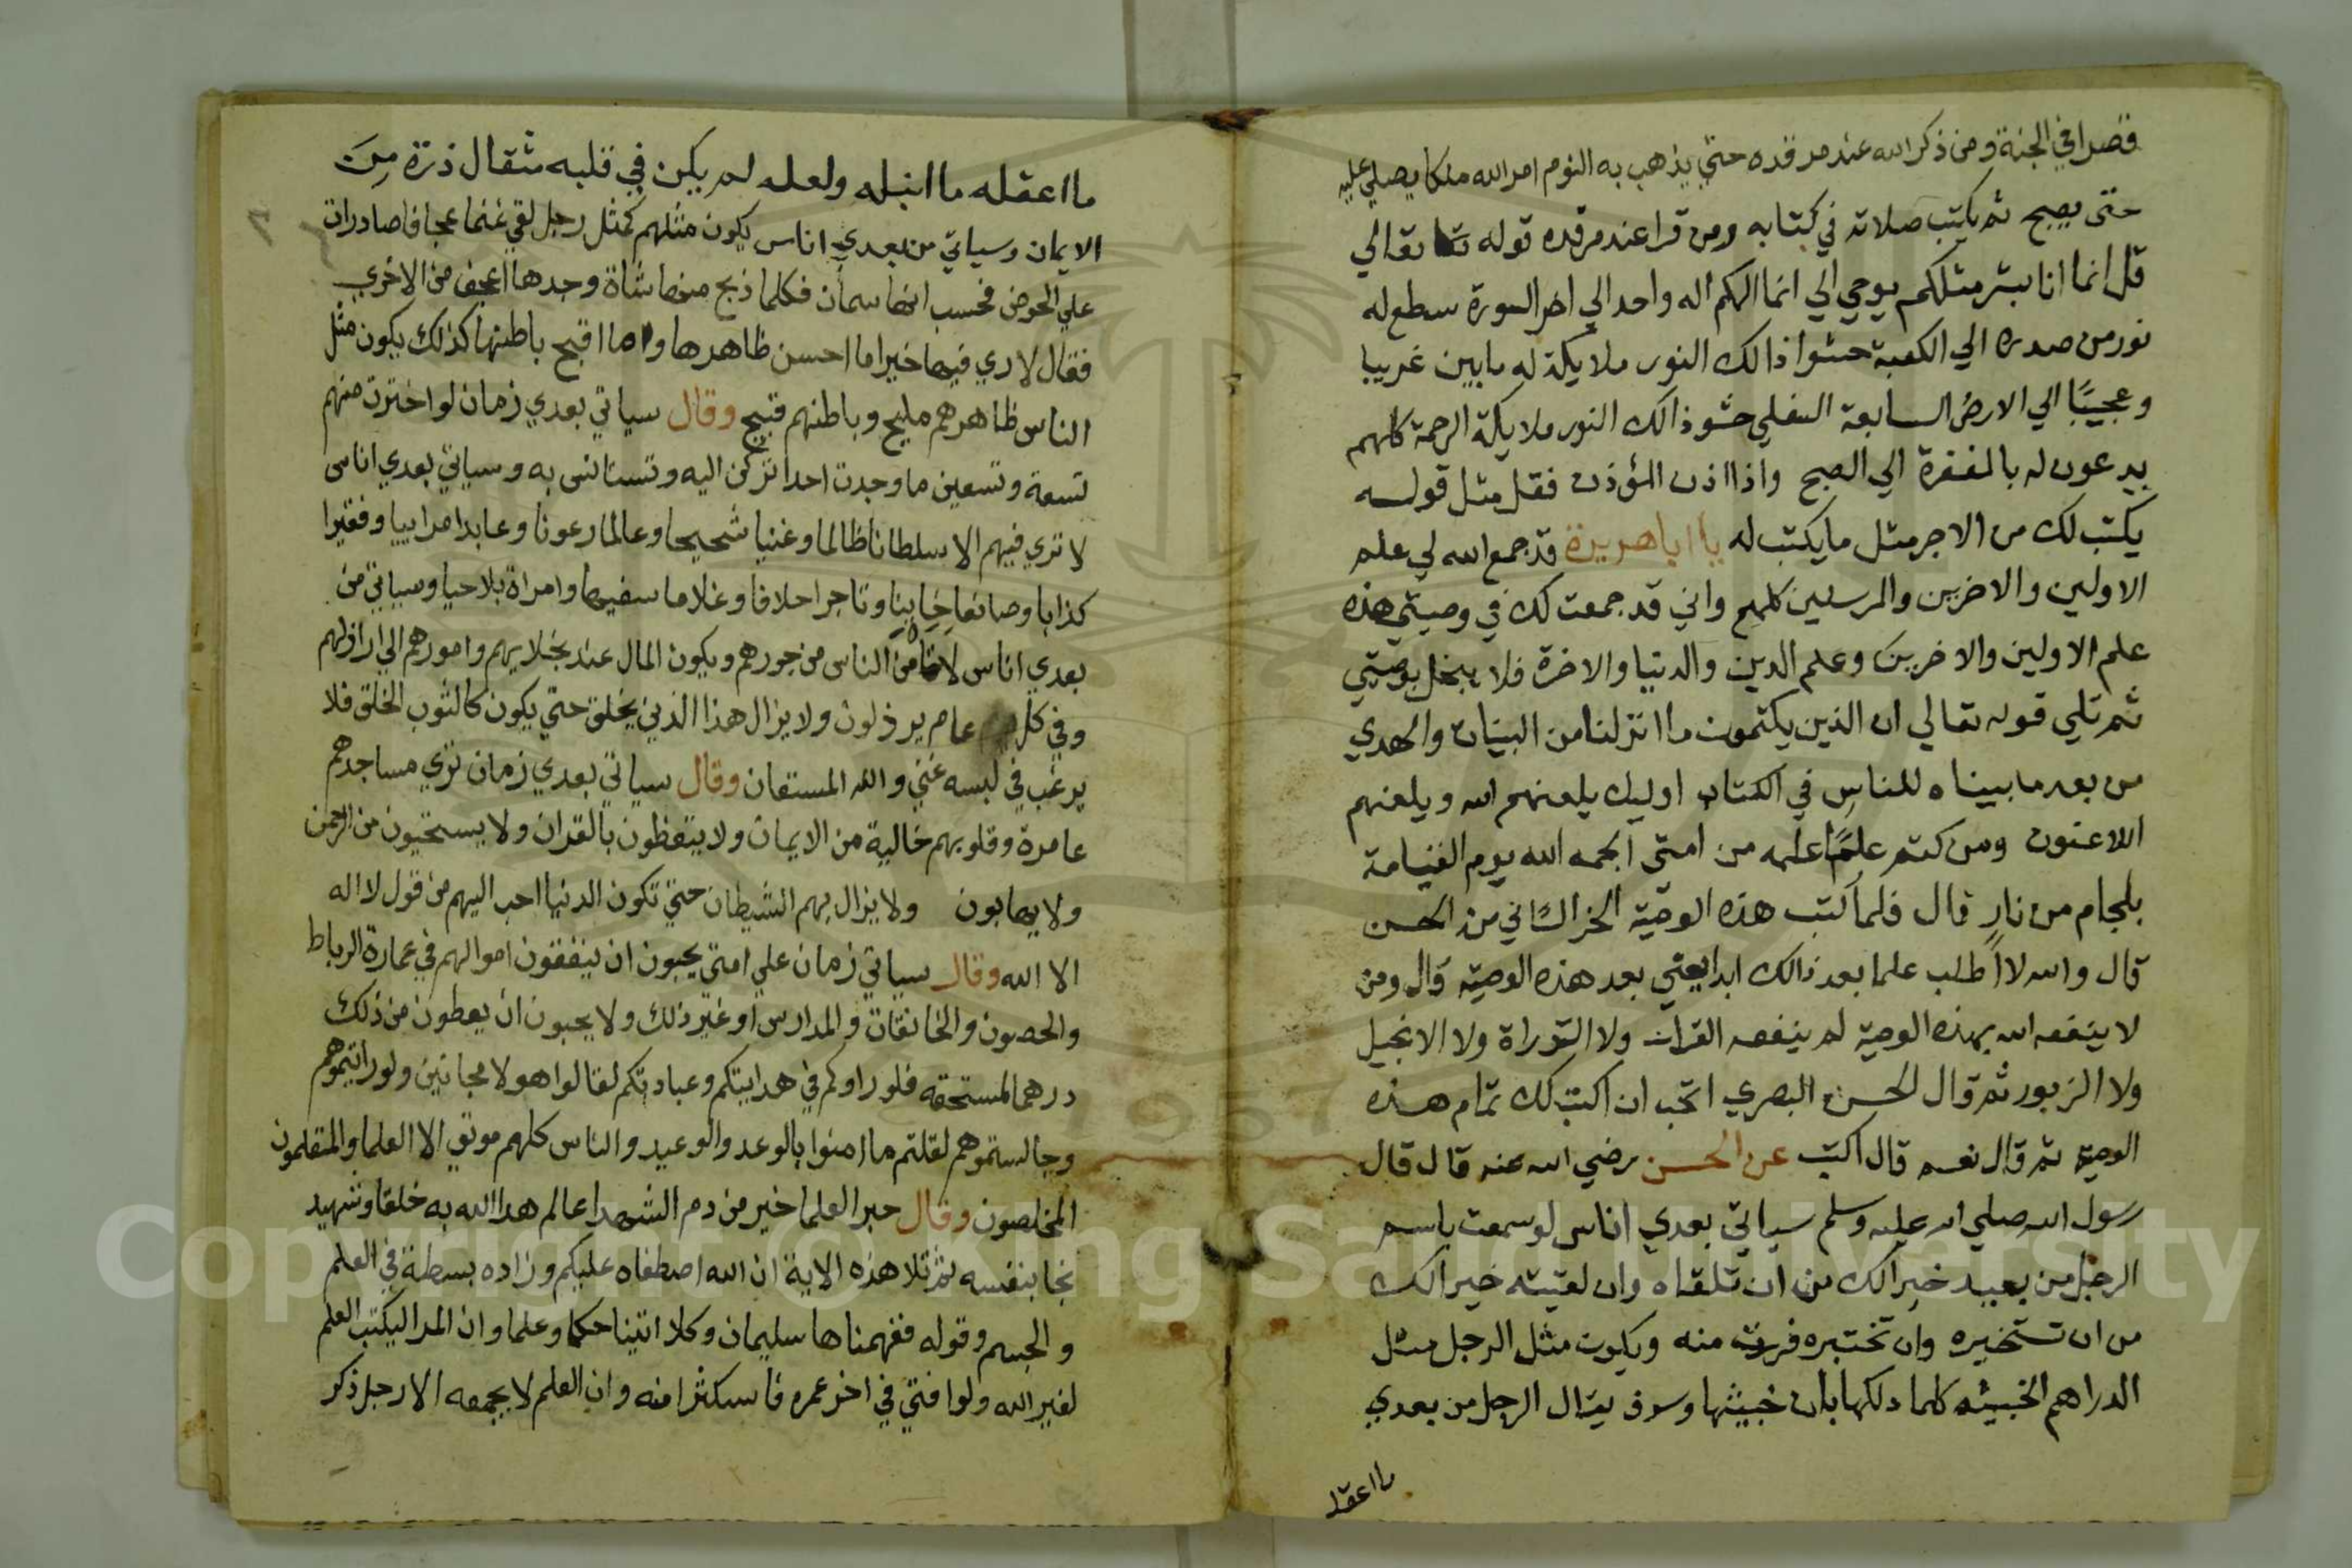 قصرا في الجنة ومن ذكر الله عند مرقده حتي يذهب به النوم امر الله ملكا يصلي عليه
حتى يصبح ثم يكتب صلاته في كتابه ومن قرا عند مرقده قوله تعالي
قل انما انا بشر مثلكم يوحي الي انما الهكم اله واحد الي اخر السورة سطع له
نور من صدره الي الكعبة حشوا ذالك النور ملايكة له مابين غريبا
وعجيبًا الي الارض السابعة السفلي حشو ذالك النور ملايكة الرحمة كلهم
يدعون له بالمغفرة الي الصبح واذا اذن المؤذن فقل مثل قوله
يكتب لك من الاجر مثل ما يكتب له يا اباهريرة قد جمع الله لي علم
الاولين والاخرين والمرسلين كلهم واني قد جمعت لك في وصيتي هذه
علم الاولين والاخرين وعلم الدين والدنيا والاخرة فلا يبخل بوصيتي
ثم تلي قوله تعالي ان الذين يكتمون ما انزلنا من البينات والهدي
من بعد ما بيناه للناس في الكتاب اوليك يلعنهم الله ويلعنهم
اللاعنون ومن كتم علمًا علمه من امتى الجمه الله يوم القيامة
بلجام من نار قال فلما كتب هذه الوصية الخراساني من الحسن
قال والله لا اطلب علما بعد ذالك ابدا يعني بعد هذه الوصية قال ومن
لا ينفعه الله بهذه الوصية لم ينفعه القران ولا التوراة ولا الانجيل
ولا الزبور ثم قال الحسن البصري اتحب ان اكتب لك تمام هذه
الوصية ثم قال نعم قال اكتب عن الحسن رضي الله عنه قال قال
رسول الله صلي الله عليه وسلم سياتي بعدي اناس لو سمعت باسم
الرجل من بعيد خير الك من ان تلقاه وان لقيته خير الك
من ان تستخيره وان تختبره فررت منه ويكون مثل الرجل مثل
الدراهم الخبيثه كلما دلكها بان خبيثها وسوف يقال الرجل من بعدي
ما اعقله
ما اعقله ما انبله ولعله لم يكن في قلبه مثقال ذرة مِنَ
الايمان وسياتي من بعدي اناس يكون مثلهم كمثل رجل لقي غنما عجافا صادرات
علي الحوض فحسب انها سمان فكلما ذبح منها شاة وجدها اعجف من الاخري
فقال لا ري فيها خيرا ما احسن ظاهرها وما اقبح باطنها كذلك يكون مثل
الناس ظاهرهم مليح وباطنهم قبيح وقال سياتي بعدي زمان لو اخترت منهم
تسعة وتسعين ما وجدت احدا تركن اليه وتستانس به وسياتي بعدي اناس
لا تري فيهم الا سلطانا ظالما وغنيا شحيحا وعالما رعونا وعابدا مراييا وفقيرا
كذابا وصانعا خاينا وتاجرا حلافا وغلاما سفيها وامراة بلا حيا وسياتي من
بعدي اناس لا تامن الناس من جورهم ويكون المال عند بخلايهم وامورهم الي اراذلهم
وفي كل عام يرذلون ولا يزال هذا الدين يخلق حتي يكون كالثوب الخلق فلا
يرغب في لبسه غني والله المستعان وقال سياتي بعدي زمان تري مساجدهم
عامرة وقلوبهم خالية من الايمان ولا يتعظون بالقران ولا يستحيون من الرحمن
ولا يهابون ولا يزال بهم الشيطان حتي تكون الدنيا احب اليهم من قول لا اله
الا الله وقال سياتي زمان علي امتي يحبون ان ينفقون اموالهم في عمارة الرباط
والحصون والخانقات والمدارس او غير ذلك ولا يحبون ان يعطون من ذلك
درهما لمستحقه فلو راوكم في هدايتكم وعبادتكم لقالوا هولا مجانين ولو رايتموهم
وجالستموهم لقلتم ما امنوا بالوعد والوعيد والناس كلهم موتي الا العلما والمتعلمون
المخلصون وقال حبر العلما خير من دم الشهدا عالم هدا الله به خلقا وشهيد
نجا بنفسه ثم تلا هذه الاية ان الله اصطفاه عليكم وزاده بسطة في العلم
والجسم وقوله ففهمناها سليمان وكلا اتينا حكما وعلما وان المرا ليكتب العلم
لغير الله ولو افتي في اخر عمره فاسكثرا منه وان العلم لا يجمعه الا رجل ذكر
Copyright © King Saud University
1957